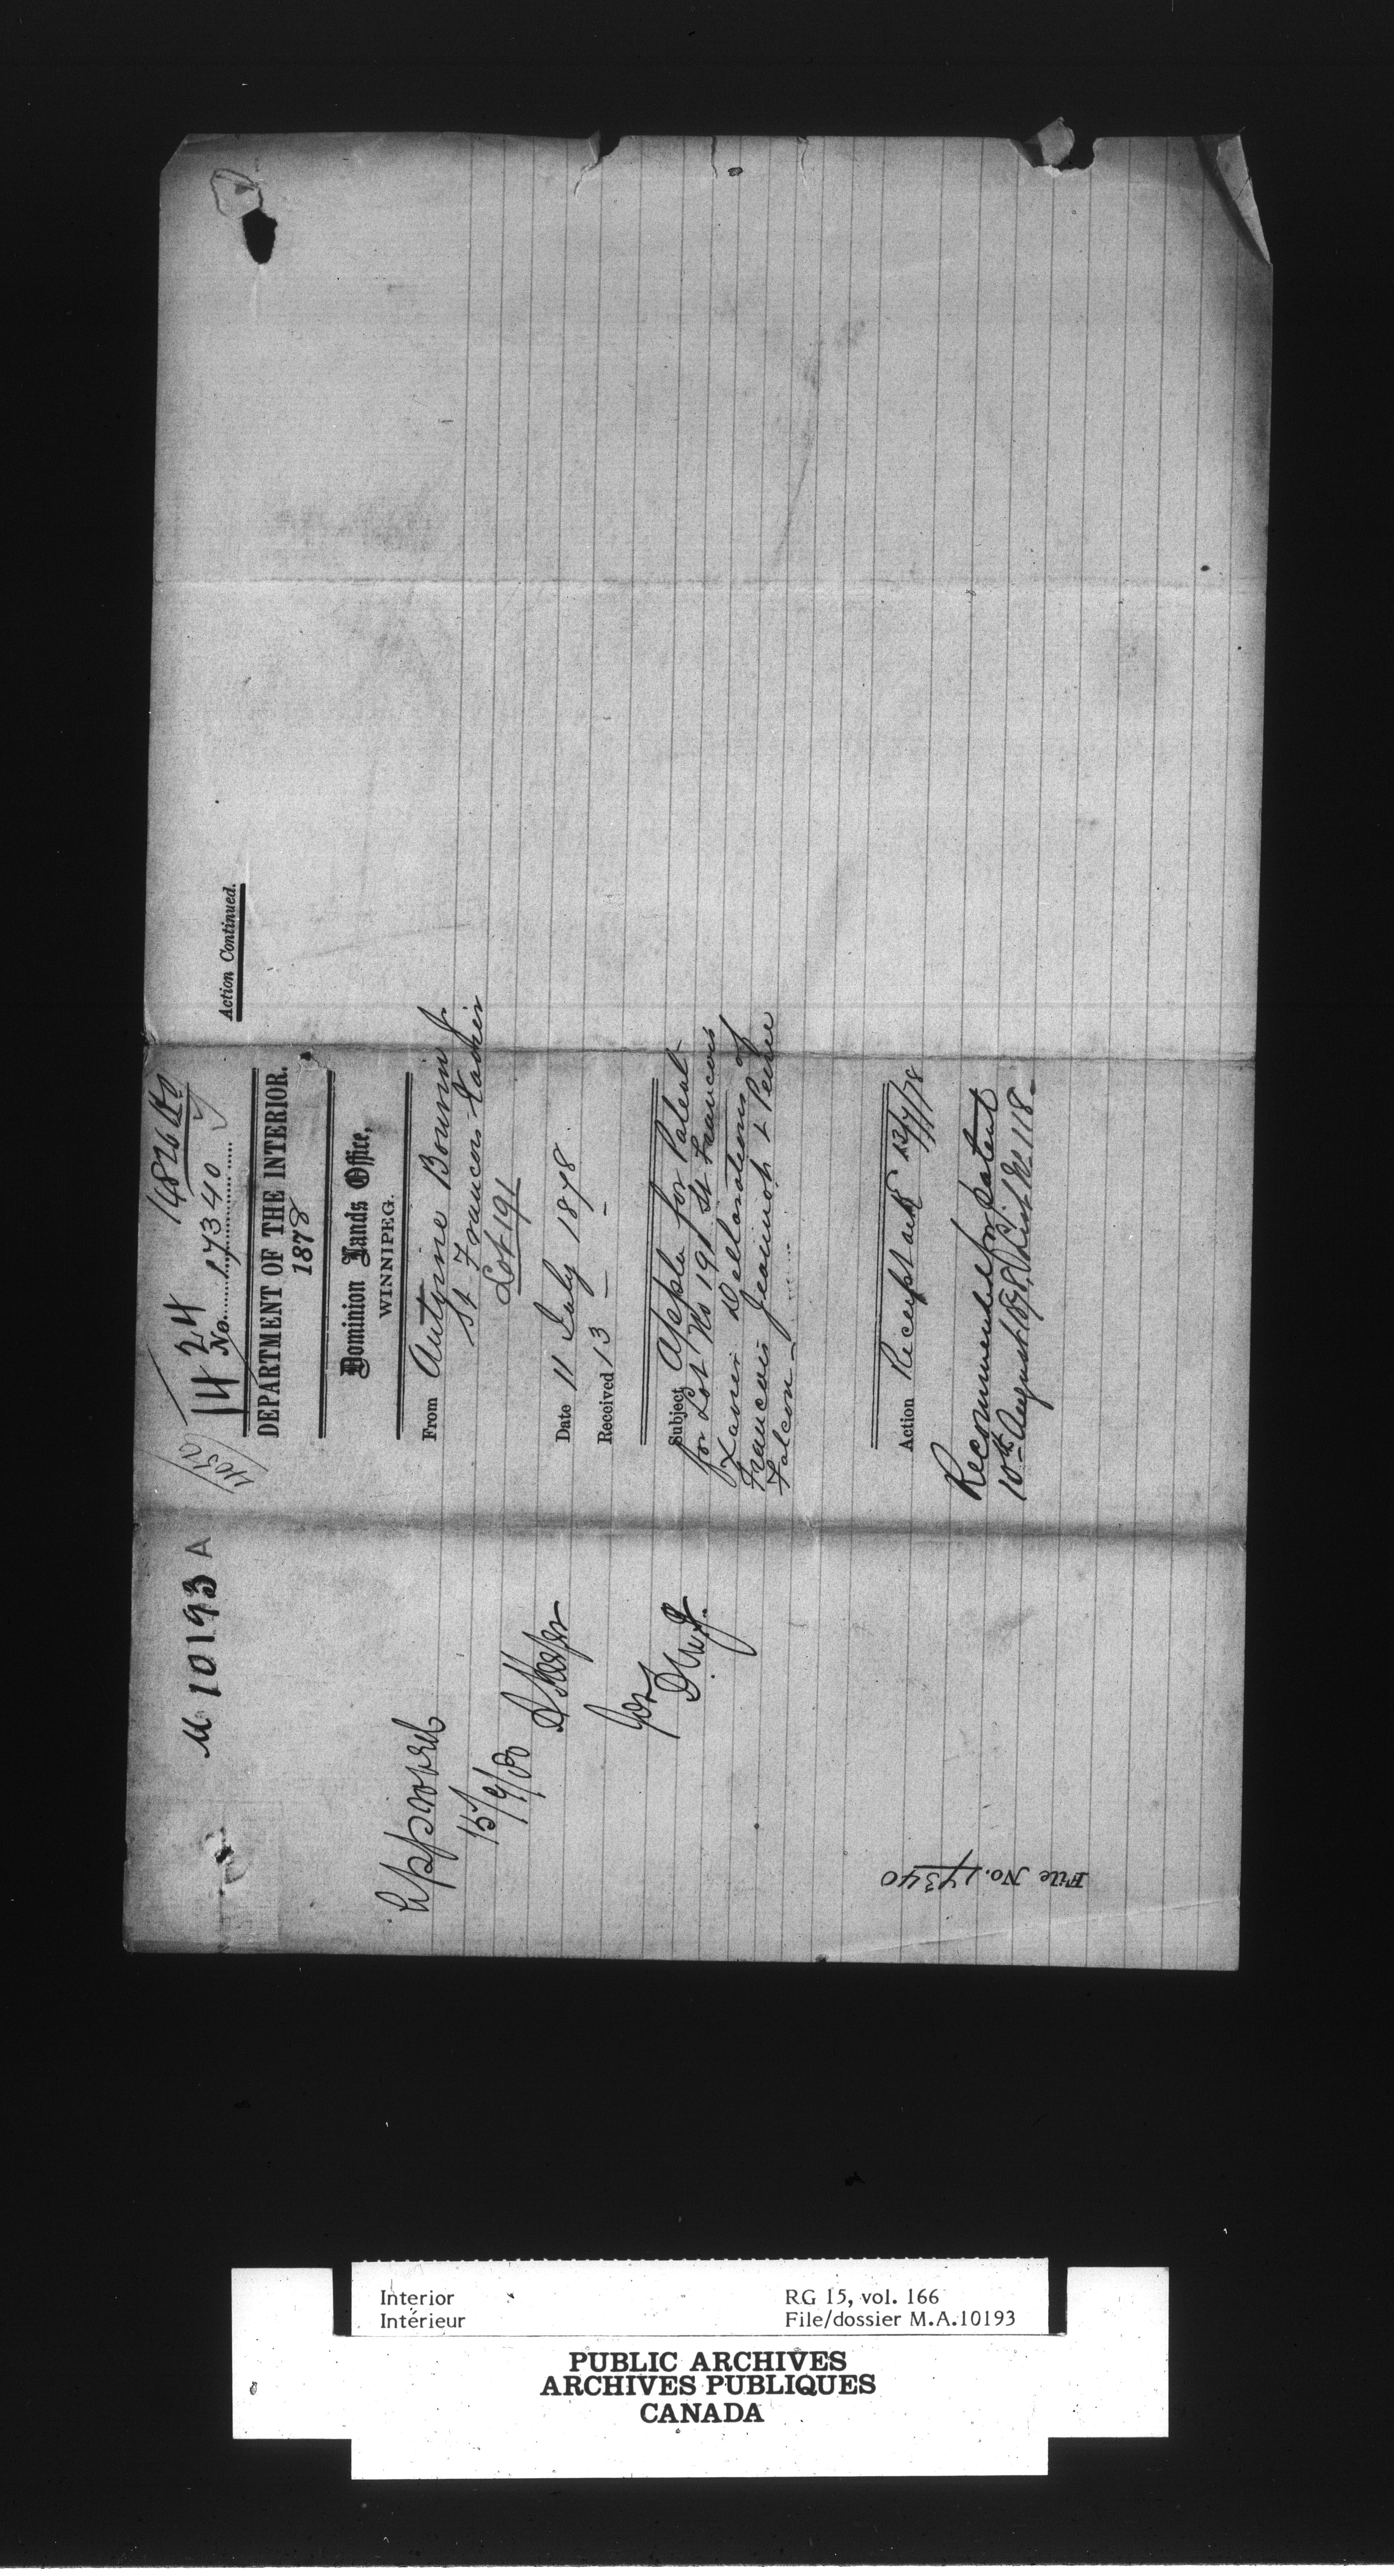 M 10193 A
1424
No. 17340
DEPARTMENT OF THE INTERIOR.
1878
Dominion Lands Office,
WINNIPEG.
From Antoine Bouvin Jr
St Francois Xavier
Lot 191
Date 11 July 1878
Received 13 — —
Subject Appln for Patent
for Lot No 191 St Francois
Xavier Declarations of
Francois Jeannot & Peirre
Falcon —
Action Receipt ackd 13/7/78
Recommended for patent
10th August 1878, List M. 118 —
Action Continued.
Approved
15/9/80
for
File No. 17340
Interior
Intérieur
RG 15, vol. 166
File/dossier M.A.10193
PUBLIC ARCHIVES
ARCHIVES PUBLIQUES
CANADA